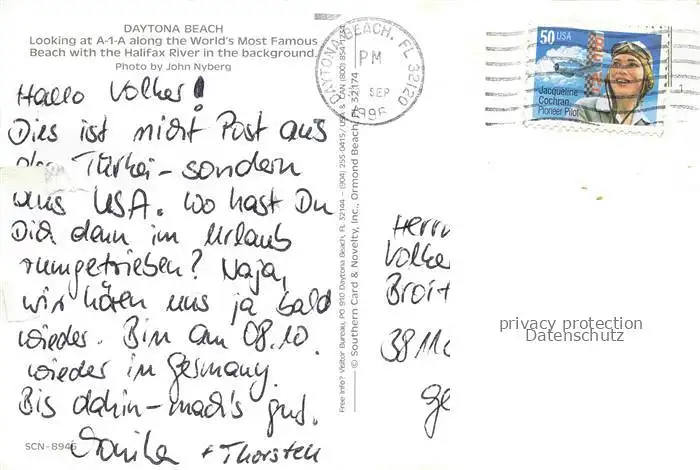 DAYTONA BEACH
Looking at A-1-A along the World's Most Famous
Beach with the Halifax River in the background.
Photo by John Nyberg
Hallo Volker!
Dies ist nicht Post aus
der Türkei - sondern
aus USA. Wo hast Du
Dich denn im Urlaub
rumgetrieben? Naja,
wir hören uns ja bald
wieder. Bin am 08.10.
wieder in Germany.
Bis dahin - mach's gut.
+ Thorsten
SCN-8946
Free info? Visitor Bureau, PO 910 Daytona Beach, FL 32144 - (904) 255-0415/USA & CAN (800) 854-1234
© Southern Card & Novelty, Inc., Ormond Beach, FL 32174
DAYTONA BEACH, FL 32120
PM
SEP
50 USA
Jacqueline
Cochran
Pioneer Pilot
Herrn
Volke
Broit
3811
Ge
privacy protection
Datenschutz